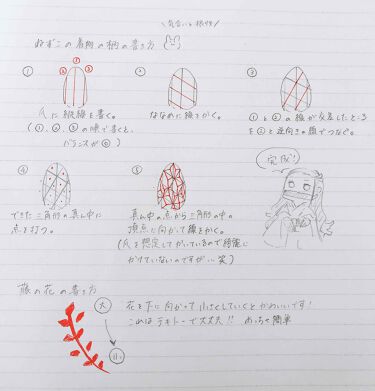 \気合いと根性/
ねずこの着物の柄の書き方
①
② ① ③
爪に縦線を書く。
(①、②、③の順で書くと、
バランスが◎)
②
ななめに線をかく。
③
①と②の線が交差したところ
を②と逆向きの線でつなぐ。
④
できた三角形の真ん中に
点を打つ。
⑤
真ん中の点から三角形の中の
頂点に向かって線をかく。
(爪を想定してかいているので綺麗に
かけていないのですが…笑)
完成!
藤の花の書き方
大
小
花を下に向かって小さくしていくとかわいいです!
これはテキトーで大丈夫!! めっちゃ簡単